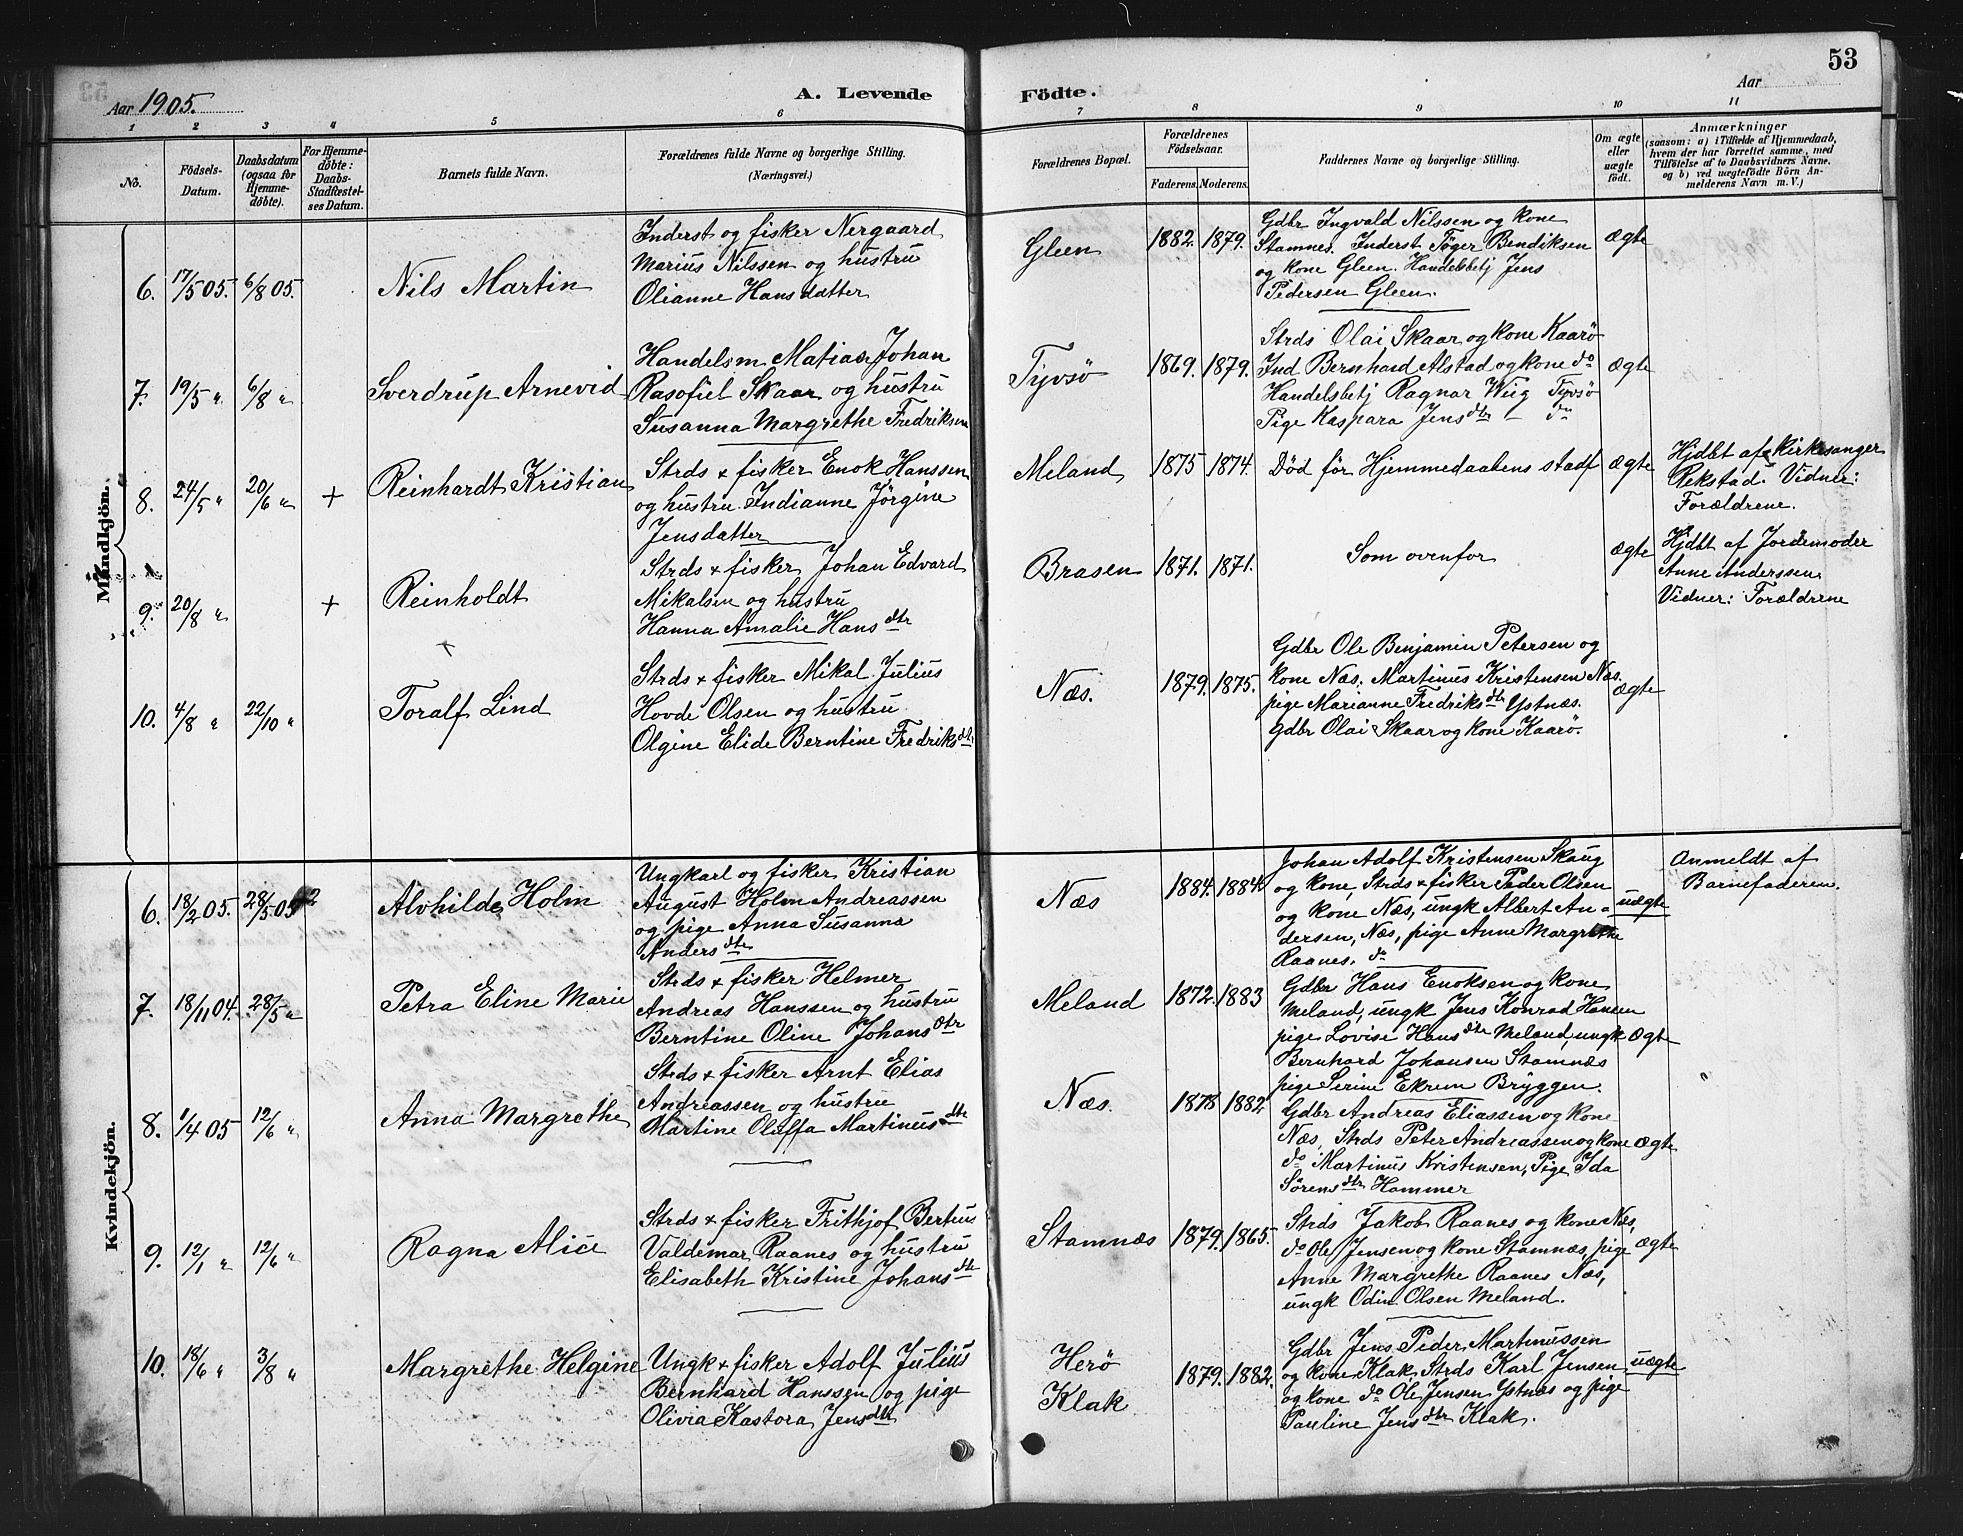 53
Aar 1905.
A. Levende Födte.
Aar
1 2 3 4 5 6 7 8 9 10 11
No.
Födsels-Datum.
Daabsdatum (ogsaa for Hjemme-döbte).
For Hjemme-döbte: Daabs-Stadfæstel-ses Datum.
Barnets fulde Navn.
Forældrenes fulde Navne og borgerlige Stilling.
(Næringsvei.)
Forældrenes Bopæl.
Forældrenes Födselsaar.
Faderens. Moderens.
Faddernes Navne og borgerlige Stilling.
Om ægte eller uægte födt.
Anmærkninger
(saasom: a) i Tilfælde af Hjemmedaab,
hvem der har forrettet samme, med
Tilföielse af to Daabsvidners Navne,
og b) ved uægtefödte Börn An-
melderens Navn m. V.)
Mandkjön.
6. 17/5 05. 6/8 05. Nils Martin
Inderst og fisker Nergaard
Marius Nilssen og hustru
Olianne Hansdatter
Gleen 1882. 1879.
Gdbr Ingvald Nilssen og kone
Stamnes. Inderst Tøger Bendiksen
og kone Gleen. Handelsbetj Jens
Pedersen Gleen.
ægte
7. 19/5 " 6/8 " Sverdrup Arnevid
Handelsm Matias Johan
Rasofiel Skaar og hustru
Susanna Margrethe Fredriksen
Tyvsö 1869. 1879.
Strds Olai Skaar og kone Kaarö
Ind Bernhard Alstad og kone do
Handelsbetj Ragnar Wiig Tyvsö
Pige Kaspara Jensdtr - do
ægte
8. 24/5 " 20/6 " + Reinhardt Kristian
Strds & fisker Enok Hanssen
og hustru Indianne Jörgine
Jensdatter
Meland 1875 1874.
Död för Hjemmedaabens stadf
ægte
Hjdbt af Kirkesanger
Rekstad. Vidner:
Forældrene.
9. 20/8 " + Reinholdt
Strds & fisker Johan Edvard
Mikalsen og hustru
Hanna Amalie Hansdtr
Brasen 1871. 1871.
Som ovenfor
ægte
Hjdbt af Jordemoder
Anne Anderssen.
Vidner: Forældrene
10. 4/8 " 22/10 " Toralf Lind
Strds & fisker Mikal Julius
Hovde Olsen og hustru
Olgine Elide Berntine Fredriksdtr
Næs. 1879. 1875.
Gdbr Ole Benjamin Petersen og
kone Næs. Martinus Kristensen Næs.
pige Marianne Fredriksdtr Ystnæs.
Gdbr Olai Skaar og kone Kaarö.
ægte
Kvindekjön.
6. 18/2 05. 28/5 05 Alvhilde Holm
Ungkarl og fisker Kristian
August Holm Andreassen
og pige Anna Susanna
Andersdtr
Næs 1884. 1884
Johan Adolf Kristensen Skaug
og kone, Strds & fisker Peder Olsen
og kone Næs, ungk Albert An-
dersen, Næs, pige Anne Margrethe
Raanes. do
uægte
Anmeldt af
Barnefaderen.
7. 18/11 04. 28/5 " Petra Eline Marie
Strds & fisker Helmer
Andreas Hanssen og hustru
Berntine Oline Johansdtr
Meland 1872. 1883
Gdbr Hans Enoksen og kone
Meland, ungk Jens Konrad Hansen
pige Lovise Hansdtr Meland, ungk
Bernhard Johansen Stamnæs
pige Serine Ekrem Bryggen.
ægte
8. 1/4 05 12/6 " Anna Margrethe
Strds & fisker Arnt Elias
Andreassen og hustru
Martine Oluffa Martinusdtr
Næs. 1878 1882
Gdbr Andreas Eliassen og kone
Næs, Strds Peter Andreassen og kone
do Martinus Kristensen, Pige Ida
Sörensdtr Hammer
ægte
9. 12/1 " 12/6 " Ragna Alice
Strds & fisker Frithjof Bertius
Valdemar Raanes og hustru
Elisabeth Kristine Johansdtr
Stamnæs 1879. 1865.
Strds Jakob Raanes og kone Næs,
do Ole Jensen og kone Stamnæs, pige
Anne Margrethe Raanes Næs,
ungk Odin Olsen Meland.
ægte
10. 18/6 " 3/8 " Margrethe Helgine
Ungk & fisker Adolf Julius
Bernhard Hanssen og pige
Olivia Kastora Jensdtr
Herö
Klak
1879. 1882.
Gdbr Jens Peder Martinussen
og kone Klak, Strds Karl Jensen
og kone do Ole Jensen Ystnæs og pige
Pauline Jensdtr Klak.
uægte